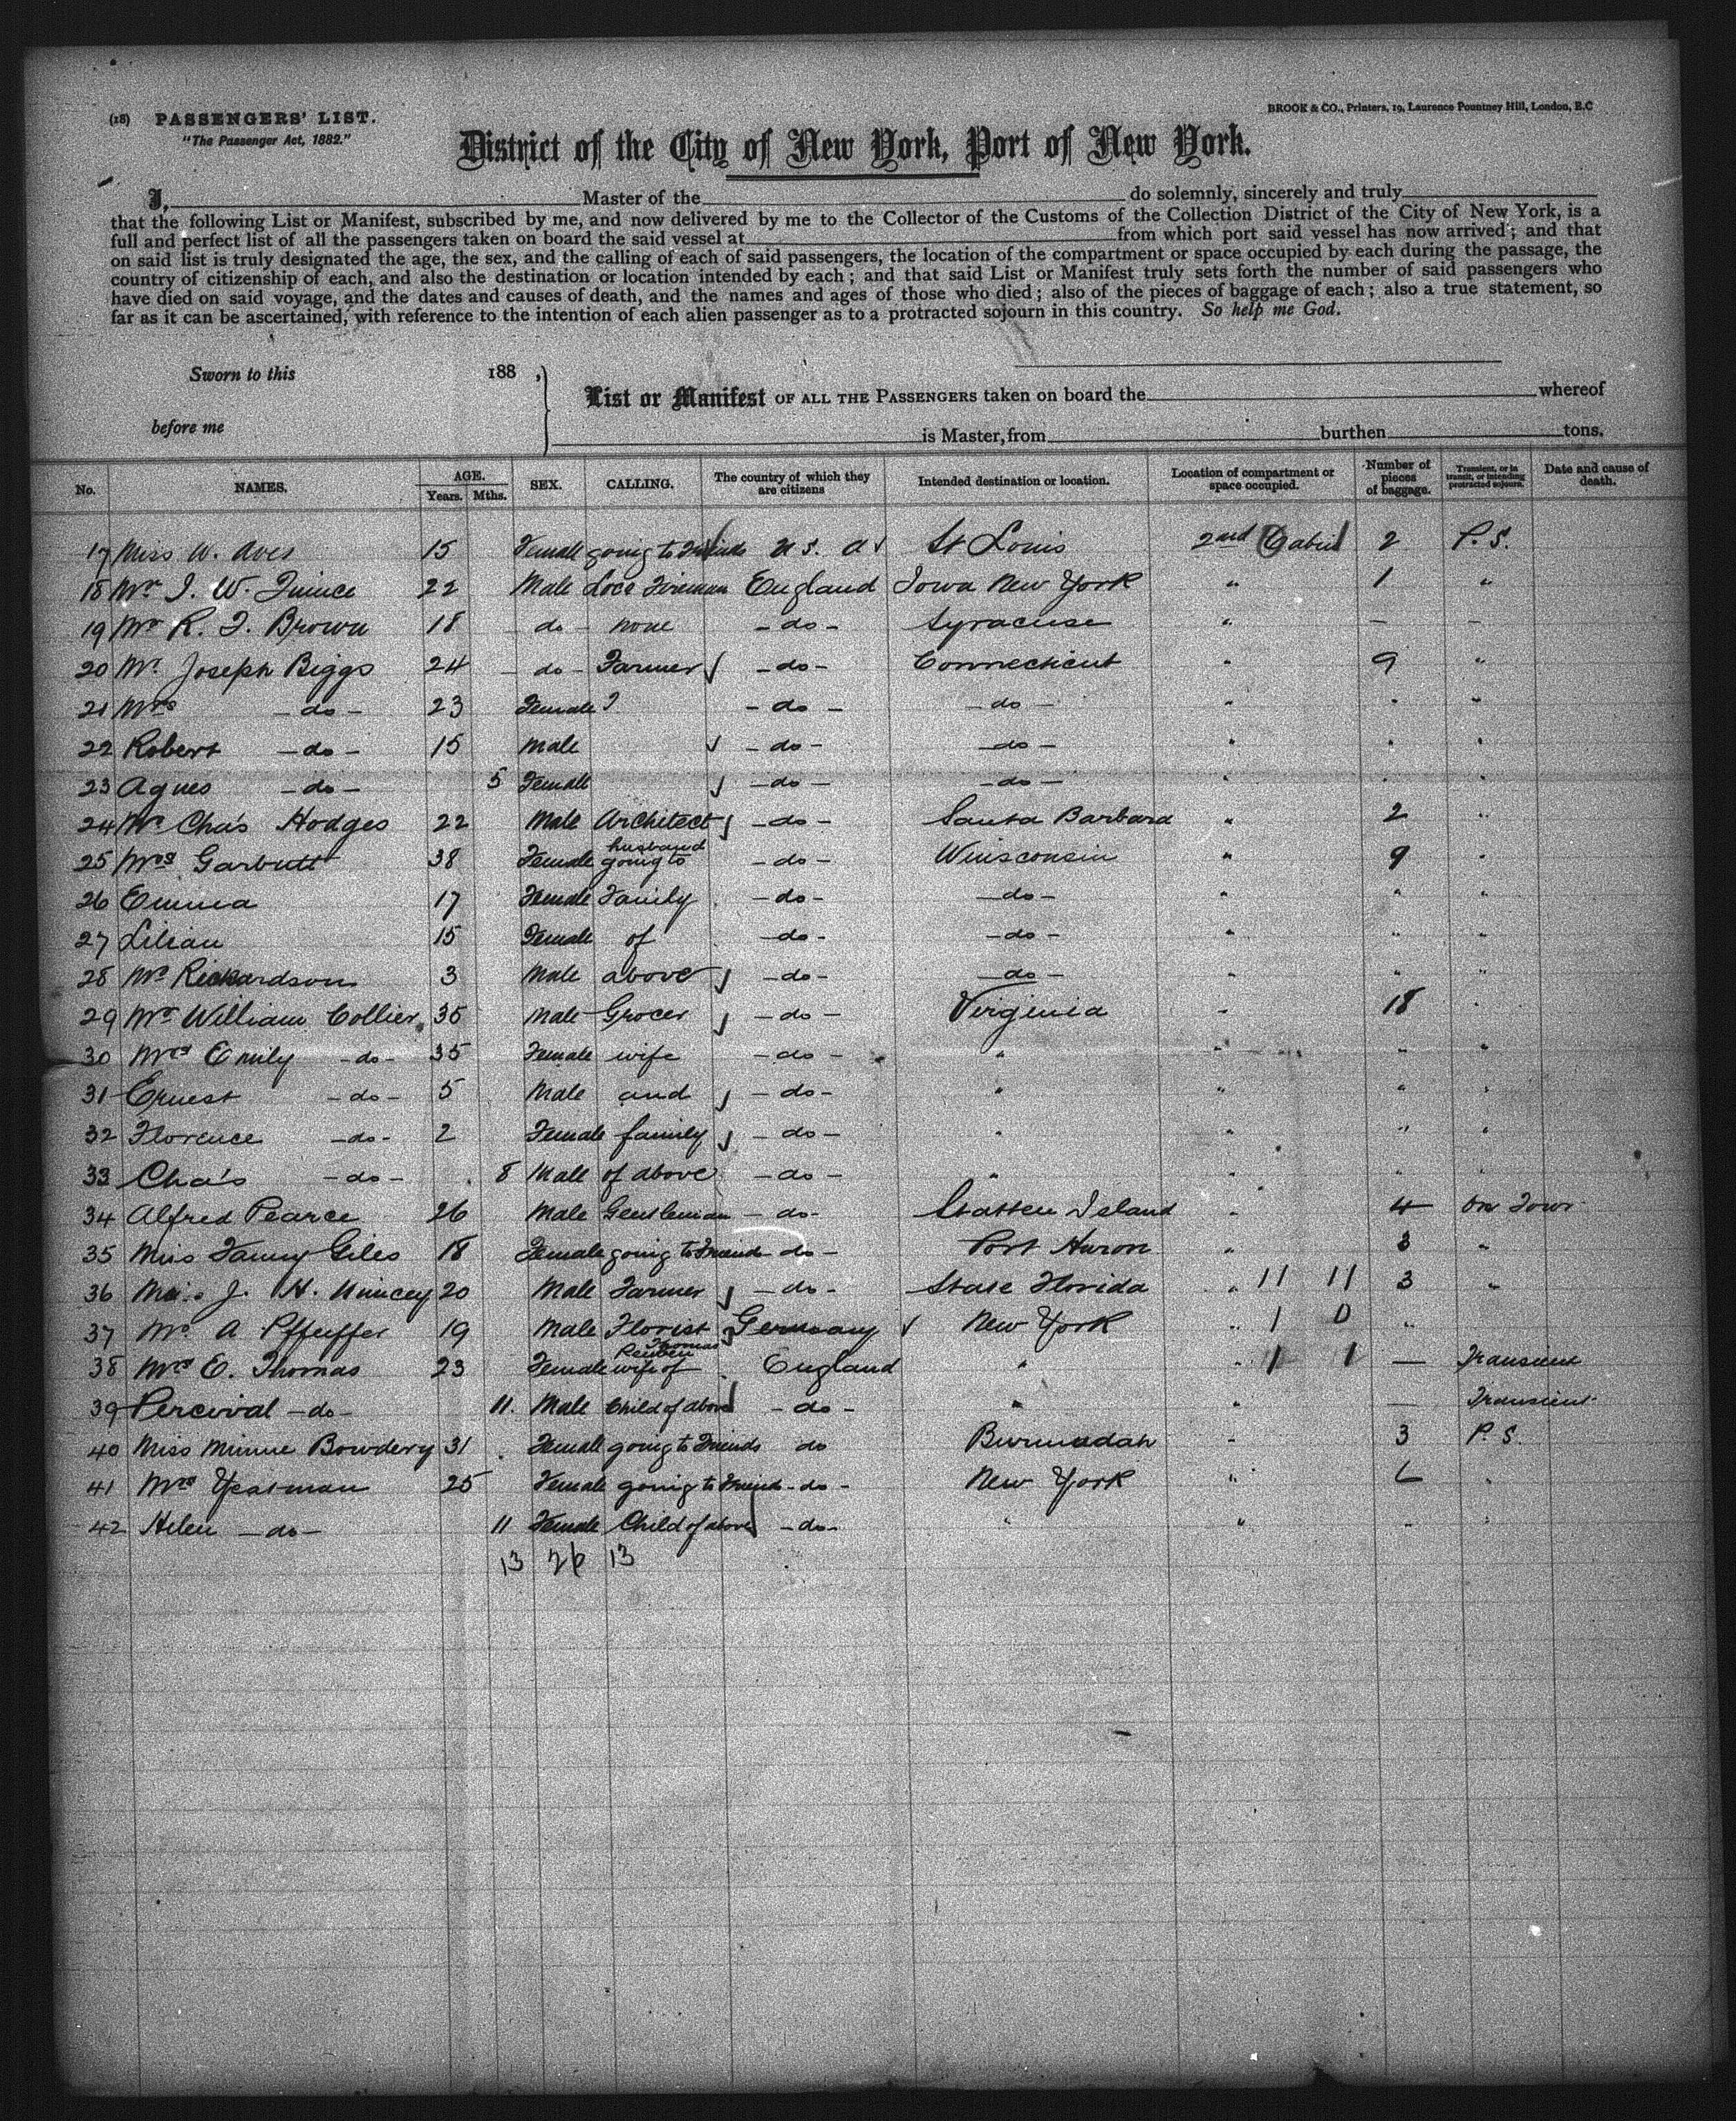 (18) PASSENGERS' LIST.
"The Passenger Act, 1882."
BROOK & CO., Printers, 19, Laurence Pountney Hill, London, E.C
District of the City of New York, Port of New York.
I, Master of the do solemnly, sincerely and truly
that the following List or Manifest, subscribed by me, and now delivered by me to the Collector of the Customs of the Collection District of the City of New York, is a
full and perfect list of all the passengers taken on board the said vessel at from which port said vessel has now arrived; and that
on said list is truly designated the age, the sex, and the calling of each of said passengers, the location of the compartment or space occupied by each during the passage, the
country of citizenship of each, and also the destination or location intended by each; and that said List or Manifest truly sets forth the number of said passengers who
have died on said voyage, and the dates and causes of death, and the names and ages of those who died; also of the pieces of baggage of each; also a true statement, so
far as it can be ascertained, with reference to the intention of each alien passenger as to a protracted sojourn in this country. So help me God.
Sworn to this 188 ,
before me
List or Manifest OF ALL THE PASSENGERS taken on board the whereof
is Master, from burthen tons.
No. NAMES. AGE. Years. Mths. SEX. CALLING. The country of which they are citizens Intended destination or location. Location of compartment or space occupied. Number of pieces of baggage. Transient, or in transit, or intending protracted sojourn. Date and cause of death.
17 Miss W. Aves 15 Female going to Friends U S. A St Louis 2nd Cabin 2 P. S.
18 Mr J. W. 22 Male Loco Fireman England Iowa New York " 1 "
19 Mr R. J. Brown 18 do - none - do - Syracuse " — -
20 Mr Joseph Biggs 24 - do - Farmer - do - Connecticut " 9 "
21 Mrs - do - 23 Female - do - - do - " " "
22 Robert - do - 15 Male - do - - do - " " "
23 Agnes - do - 5 Female - do - - do - " " "
24 Mr Cha's Hodges 22 Male Architect - do - Santa Barbara " 2 "
25 Mrs Garbutt 38 Female going to husband - do - Winsconsin " 9 "
26 Emma 17 Female Family - do - - do - " " "
27 Lilian 15 Female of - do - - do - " " "
28 Mr Richardson 3 Male above - do - - do - " " "
29 Mr William Collier 35 Male Grocer - do - Virginia " 18 "
30 Mrs Emily - do - 35 Female wife - do - " " " "
31 Ernest - do - 5 Male and - do - " " " "
32 Florence - do - 2 Female family - do - " " " "
33 Cha's - do - 8 Male of above - do - " " " "
34 Alfred Pearce 26 Male Gentleman - do - Statten Island " 4 on Tour
35 Miss Fanny Giles 18 Female going to Friends do - Port Huron " 3 "
36 J. H. 20 Male Farmer - do - State Florida " 11 11 3 "
37 Mr A Pffeiffer 19 Male Florist Germany New York " 1 0 "
38 Mrs E. Thomas 23 Female wife of Reuben Thomas England " " 1 1 — Transient
39 Percival - do - 11. Male Child of above - do - " " — Transient
40 Miss Minnie Bowdery 31 Female going to Friends do Burmudah - 3 P. S.
41 Mrs Yeatman 25 Female going to Friends - do - New York " 6 "
42 Helen - do - 11 Female Child of above - do - " " - "
13 26 13